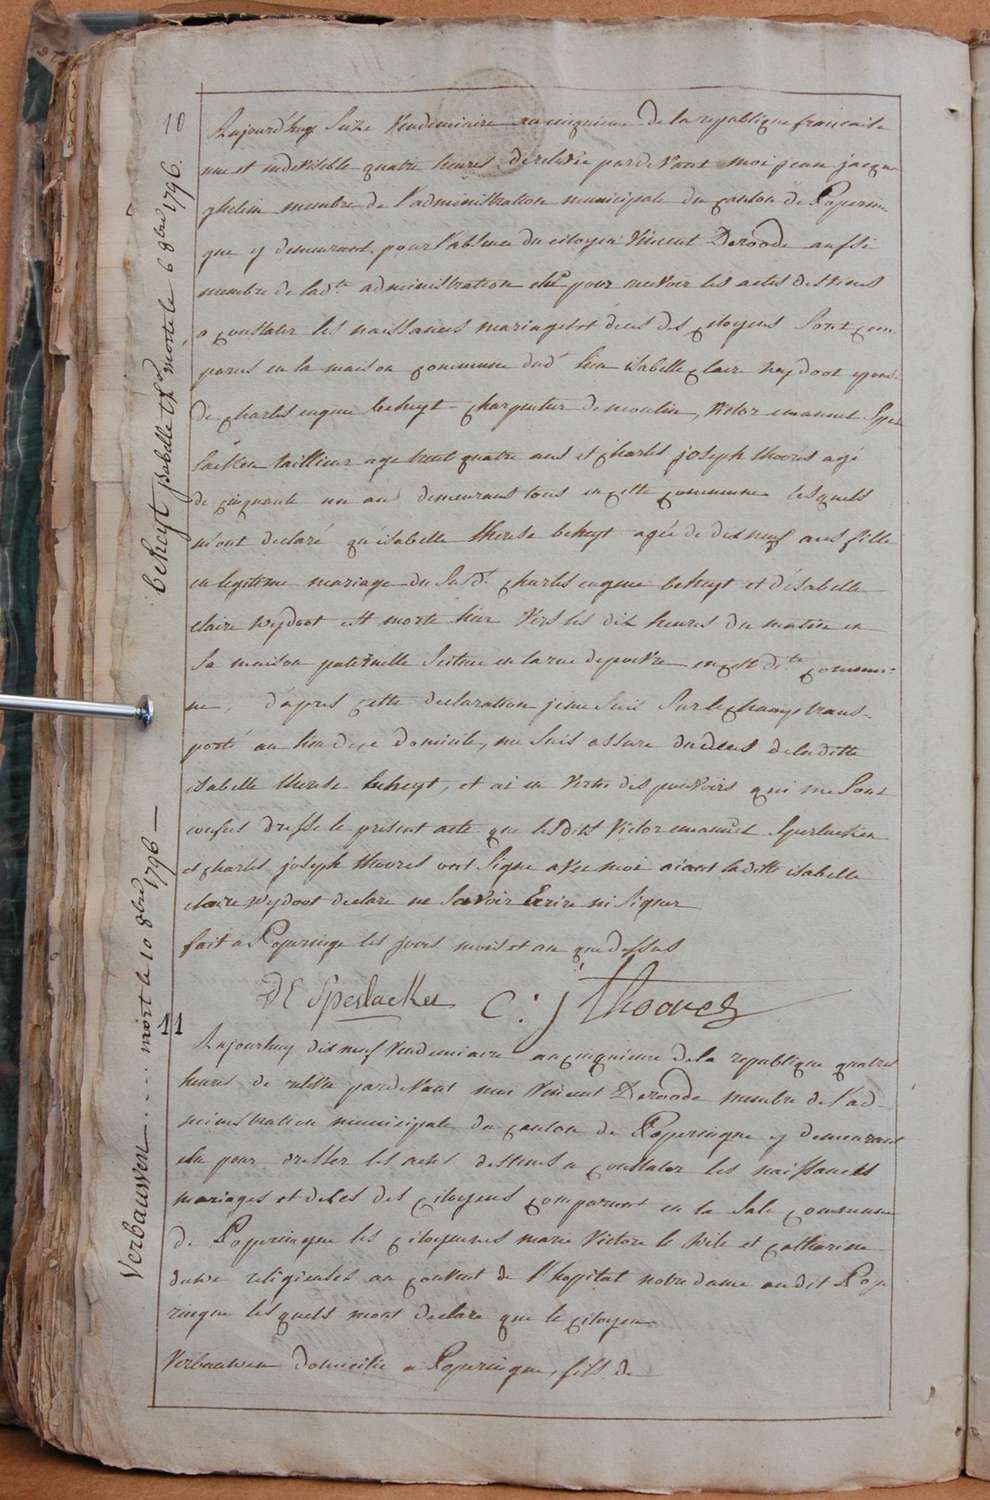 10
Aujourd'huy Seize Vendemiaire au cinquieme de la republique francaise
une et indivisible quatre heures de relevée pardevant moi jean jacque
ghelein membre de l'administration municipale du canton de Poperin
que y demeurant pour l'absence du citoyen Vincent Deroode aussi
membre de lad.te administration elu pour recevoir les actes destinés
a constater les naissances mariages et deces des citoyens Sont com
parus en la maison commune dud.t lieu isabelle claire wydoot epouse
de charles eugene beheyt charpentier de moulin, Victor emanuel Sper
laecken tailleur age trent quatre ans et charles joseph thoores agé
de cinquante un ans demeurans tous en cette commune lesquels
m'ont declaré qu'isabelle therese beheyt agée de dix neuf ans fille
en legitime mariage du Susd.t charles eugene beheyt et d'isabelle
claire wydoot est morte hier Vers les dix heures du matin en
Sa maison paternelle Scitue en la rue depoivre en cette d.te commu-
ne, d'apres cette declaration je me Suis Sur le champ trans-
porté au lieu de ce domicile, me Suis assure du deces de laditte
isabelle therese beheyt, et ai en Vertu des pouvoirs qui me Sont
confies dresse le present acte que lesdits Victor emanuel Sperlaecken
et charles joseph thoores ont Signe avec moi aiant laditte isabelle
claire wydoot declare ne Savoir Ecrire ni Signer
fait a Poperinge les jours mois et an que dessus
VE Sperlaecken C: j Thoores
11
Aujourhuy dix neuf Vendemiaire au cinquieme de la republique quatre
heures de relevée pardevant moi Vincent Deroode membre de l'ad-
ministration municipale du canton de Poperingue y demeurant
elu pour dresser les actes destinés a constater les naissances
mariages et deces des citoyens comparurent en la Sale commune
de Poperingue les citoyennes marie Victoire le Wile et catharine
religieuses au couvent de l'hopital notre dame audit Pope
ringue lesquels mont declare que le citoyen
Verbauwen domicilie a Poperingue, fils de
beheyt isabelle th.se morte le 6 8bre 1796.
Verbauwen .... mort le 10 8bre 1796 —